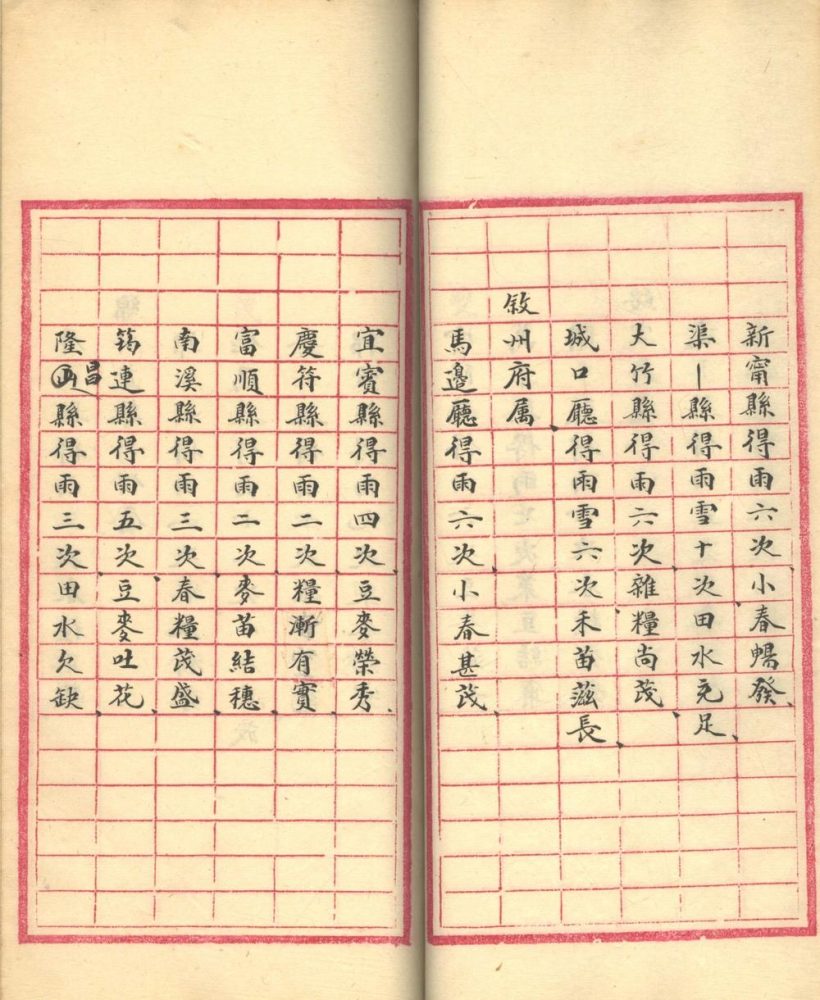 新甯縣得雨六次、小春暢發、
渠｜縣得雨雪十次田水充足、
大竹縣得雨六次、雜糧尚茂、
城口廳得雨雪六次禾苗滋長、
敘州府属、
馬邊廳得雨六次、小春甚茂、
宜賓縣得雨四次、豆麥榮秀、
慶符縣得雨二次糧漸有實、
富順縣得雨二次、麥苗結穗、
南溪縣得雨三次、春糧茂盛、
筠連縣得雨五次、豆麥吐花、
隆昌縣得雨三次田水欠缺